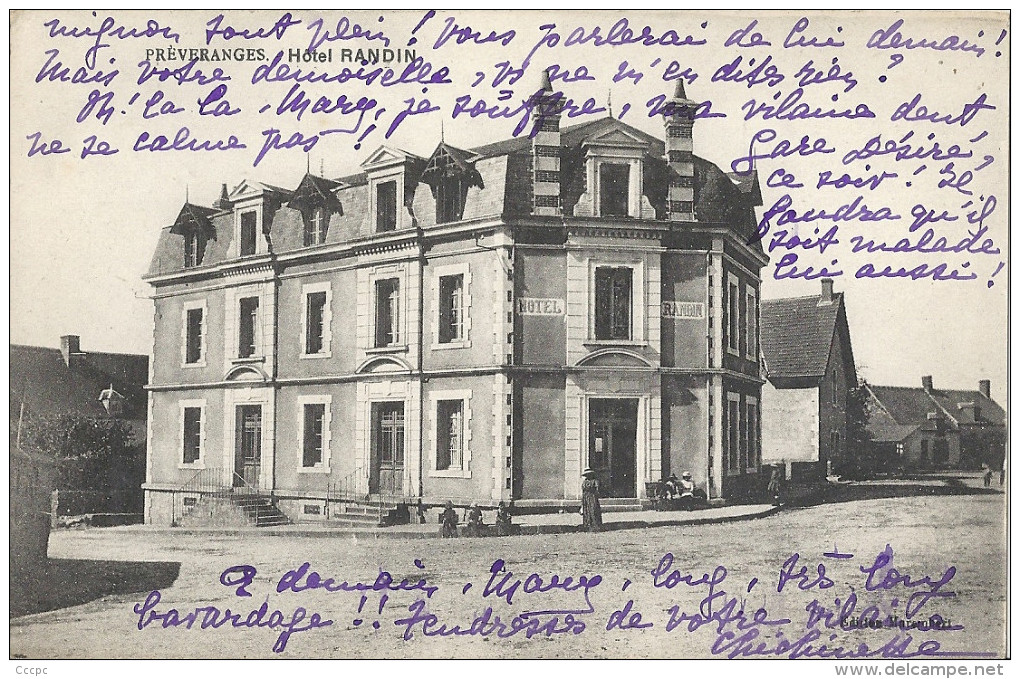 mignon sont plein! Vous parlerai de lui demain!
PRÈVERANGES. Hôtel RANDIN
Mais votre demoiselle, vs ne m'en dites rien?
Oh! la la, Mary, je souffre, ma vilaine dent
ne se calme pas!
Gare Désiré,
ce soir! Il
faudra qu'il
soit malade
lui aussi!
HOTEL RANDIN
à demain, Mary, long, très long
bavardage!! tendresses de votre vilaine
Chichinette
Edition Marembert
Ccpc